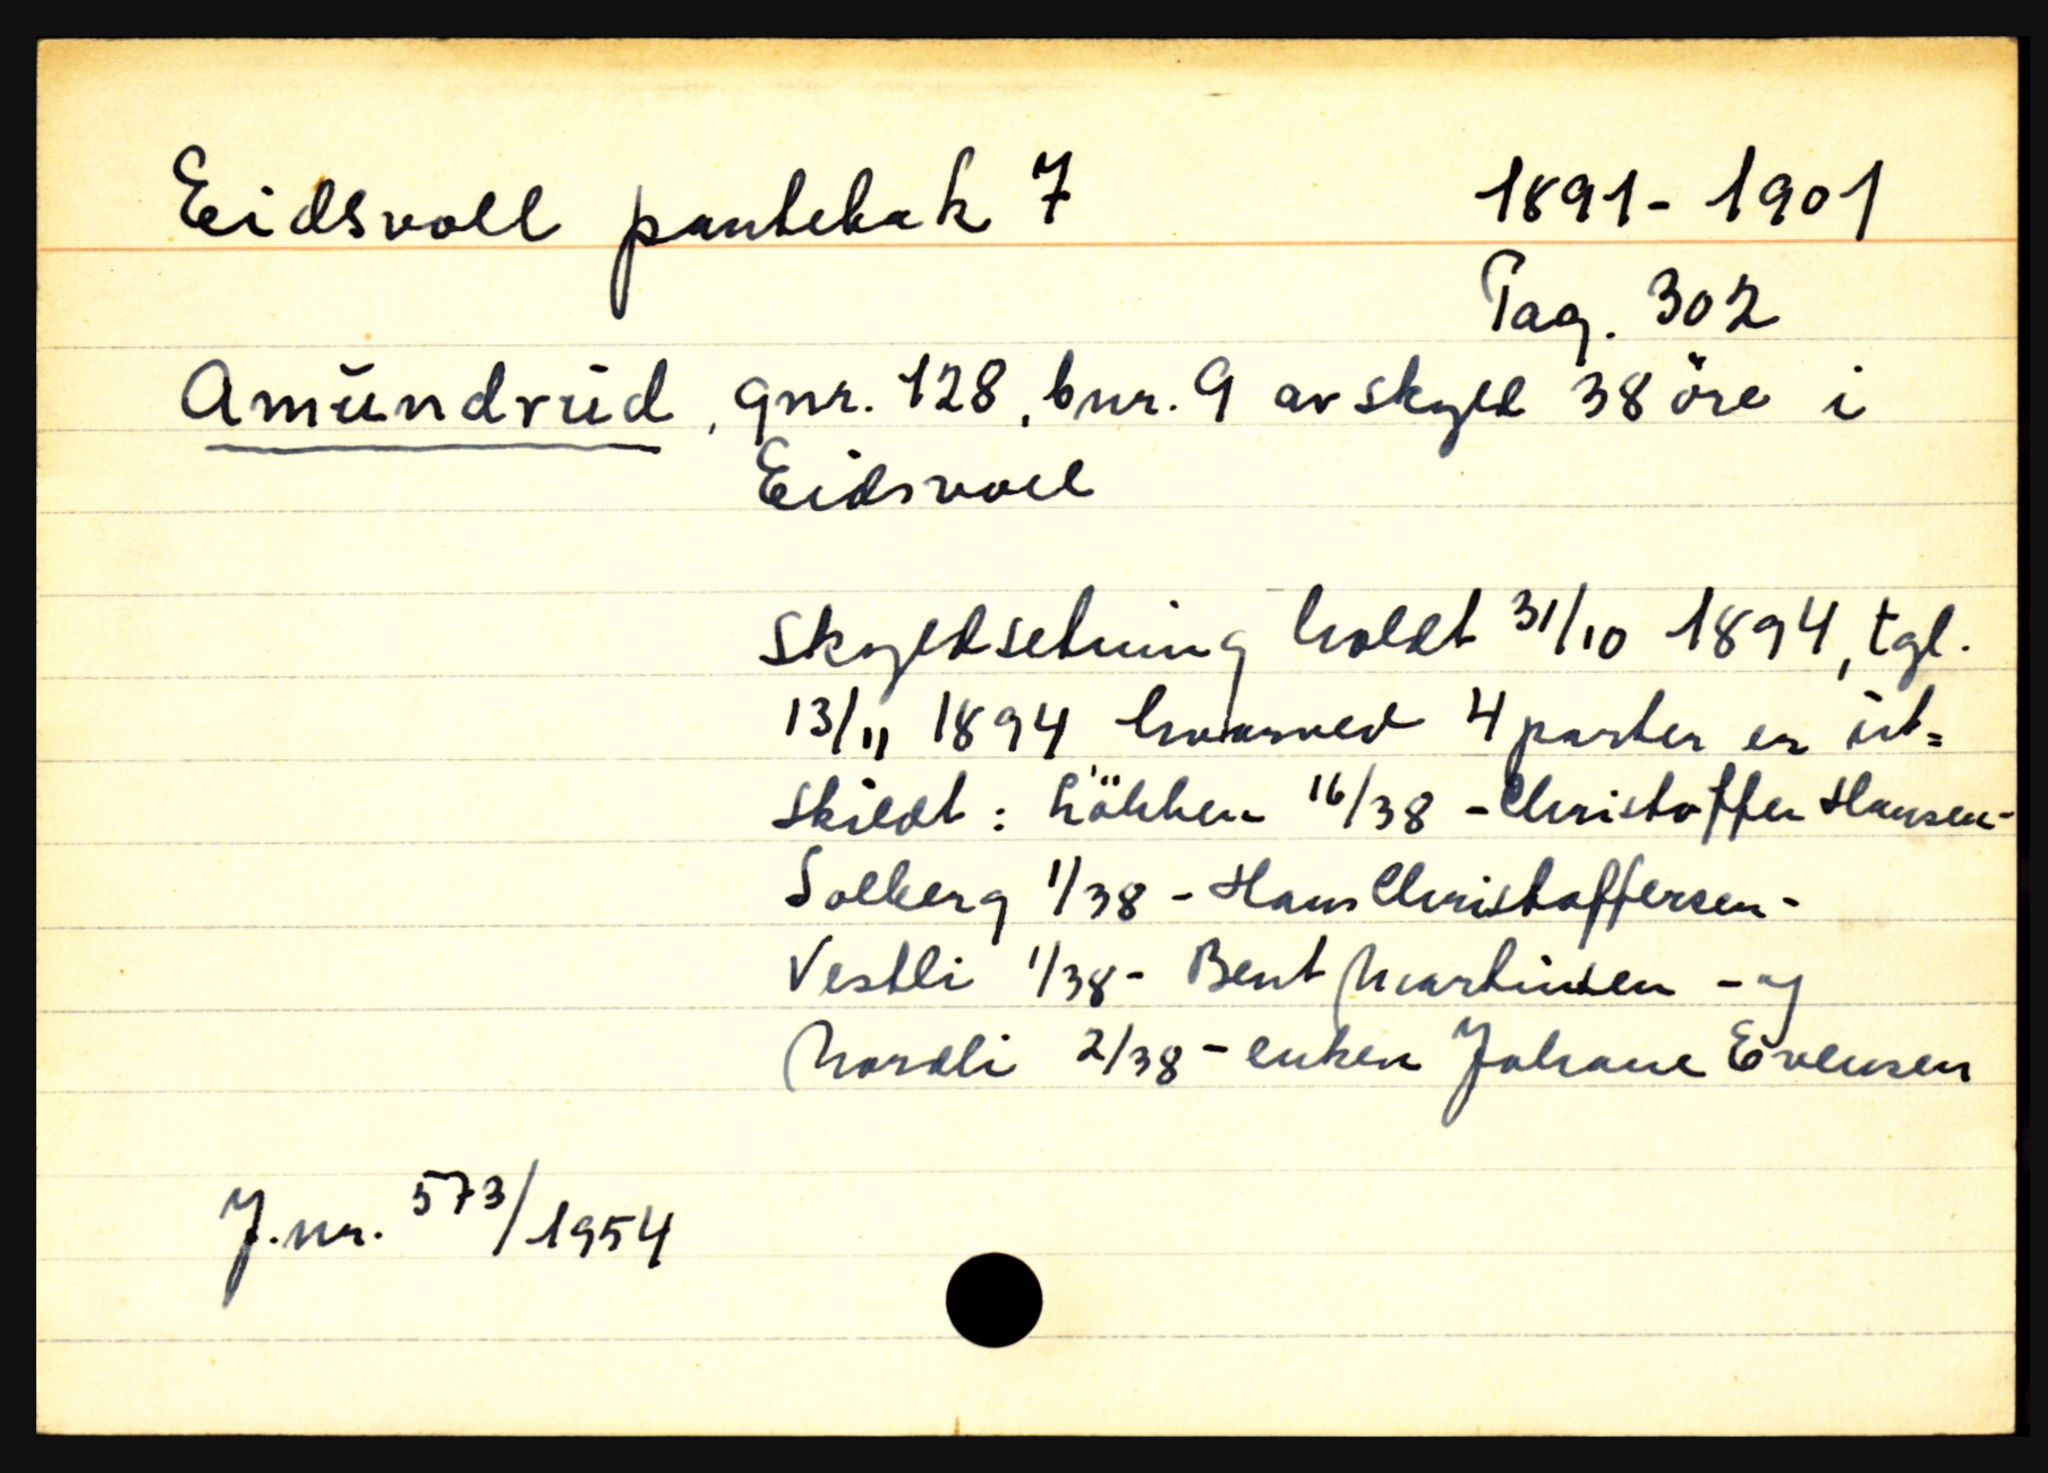 Eidsvoll pantebok 7 1891-1901
Pag. 302
Amundrud, gnr. 128, bnr. 9 av skyld 38 öre i
Eidsvoll
Skyldsetning holdt 31/10 1894, tgl.
13/11 1894 hvorved 4 parter er ut=
skildt: Lökken 16/38 - Christoffer Hansen -
Solberg 1/38 - Hans Christoffersen -
Vestli 1/38 - Bent Martinsen - og
Nordli 2/38 - enken Johane Evensen
J.nr. 573/1954